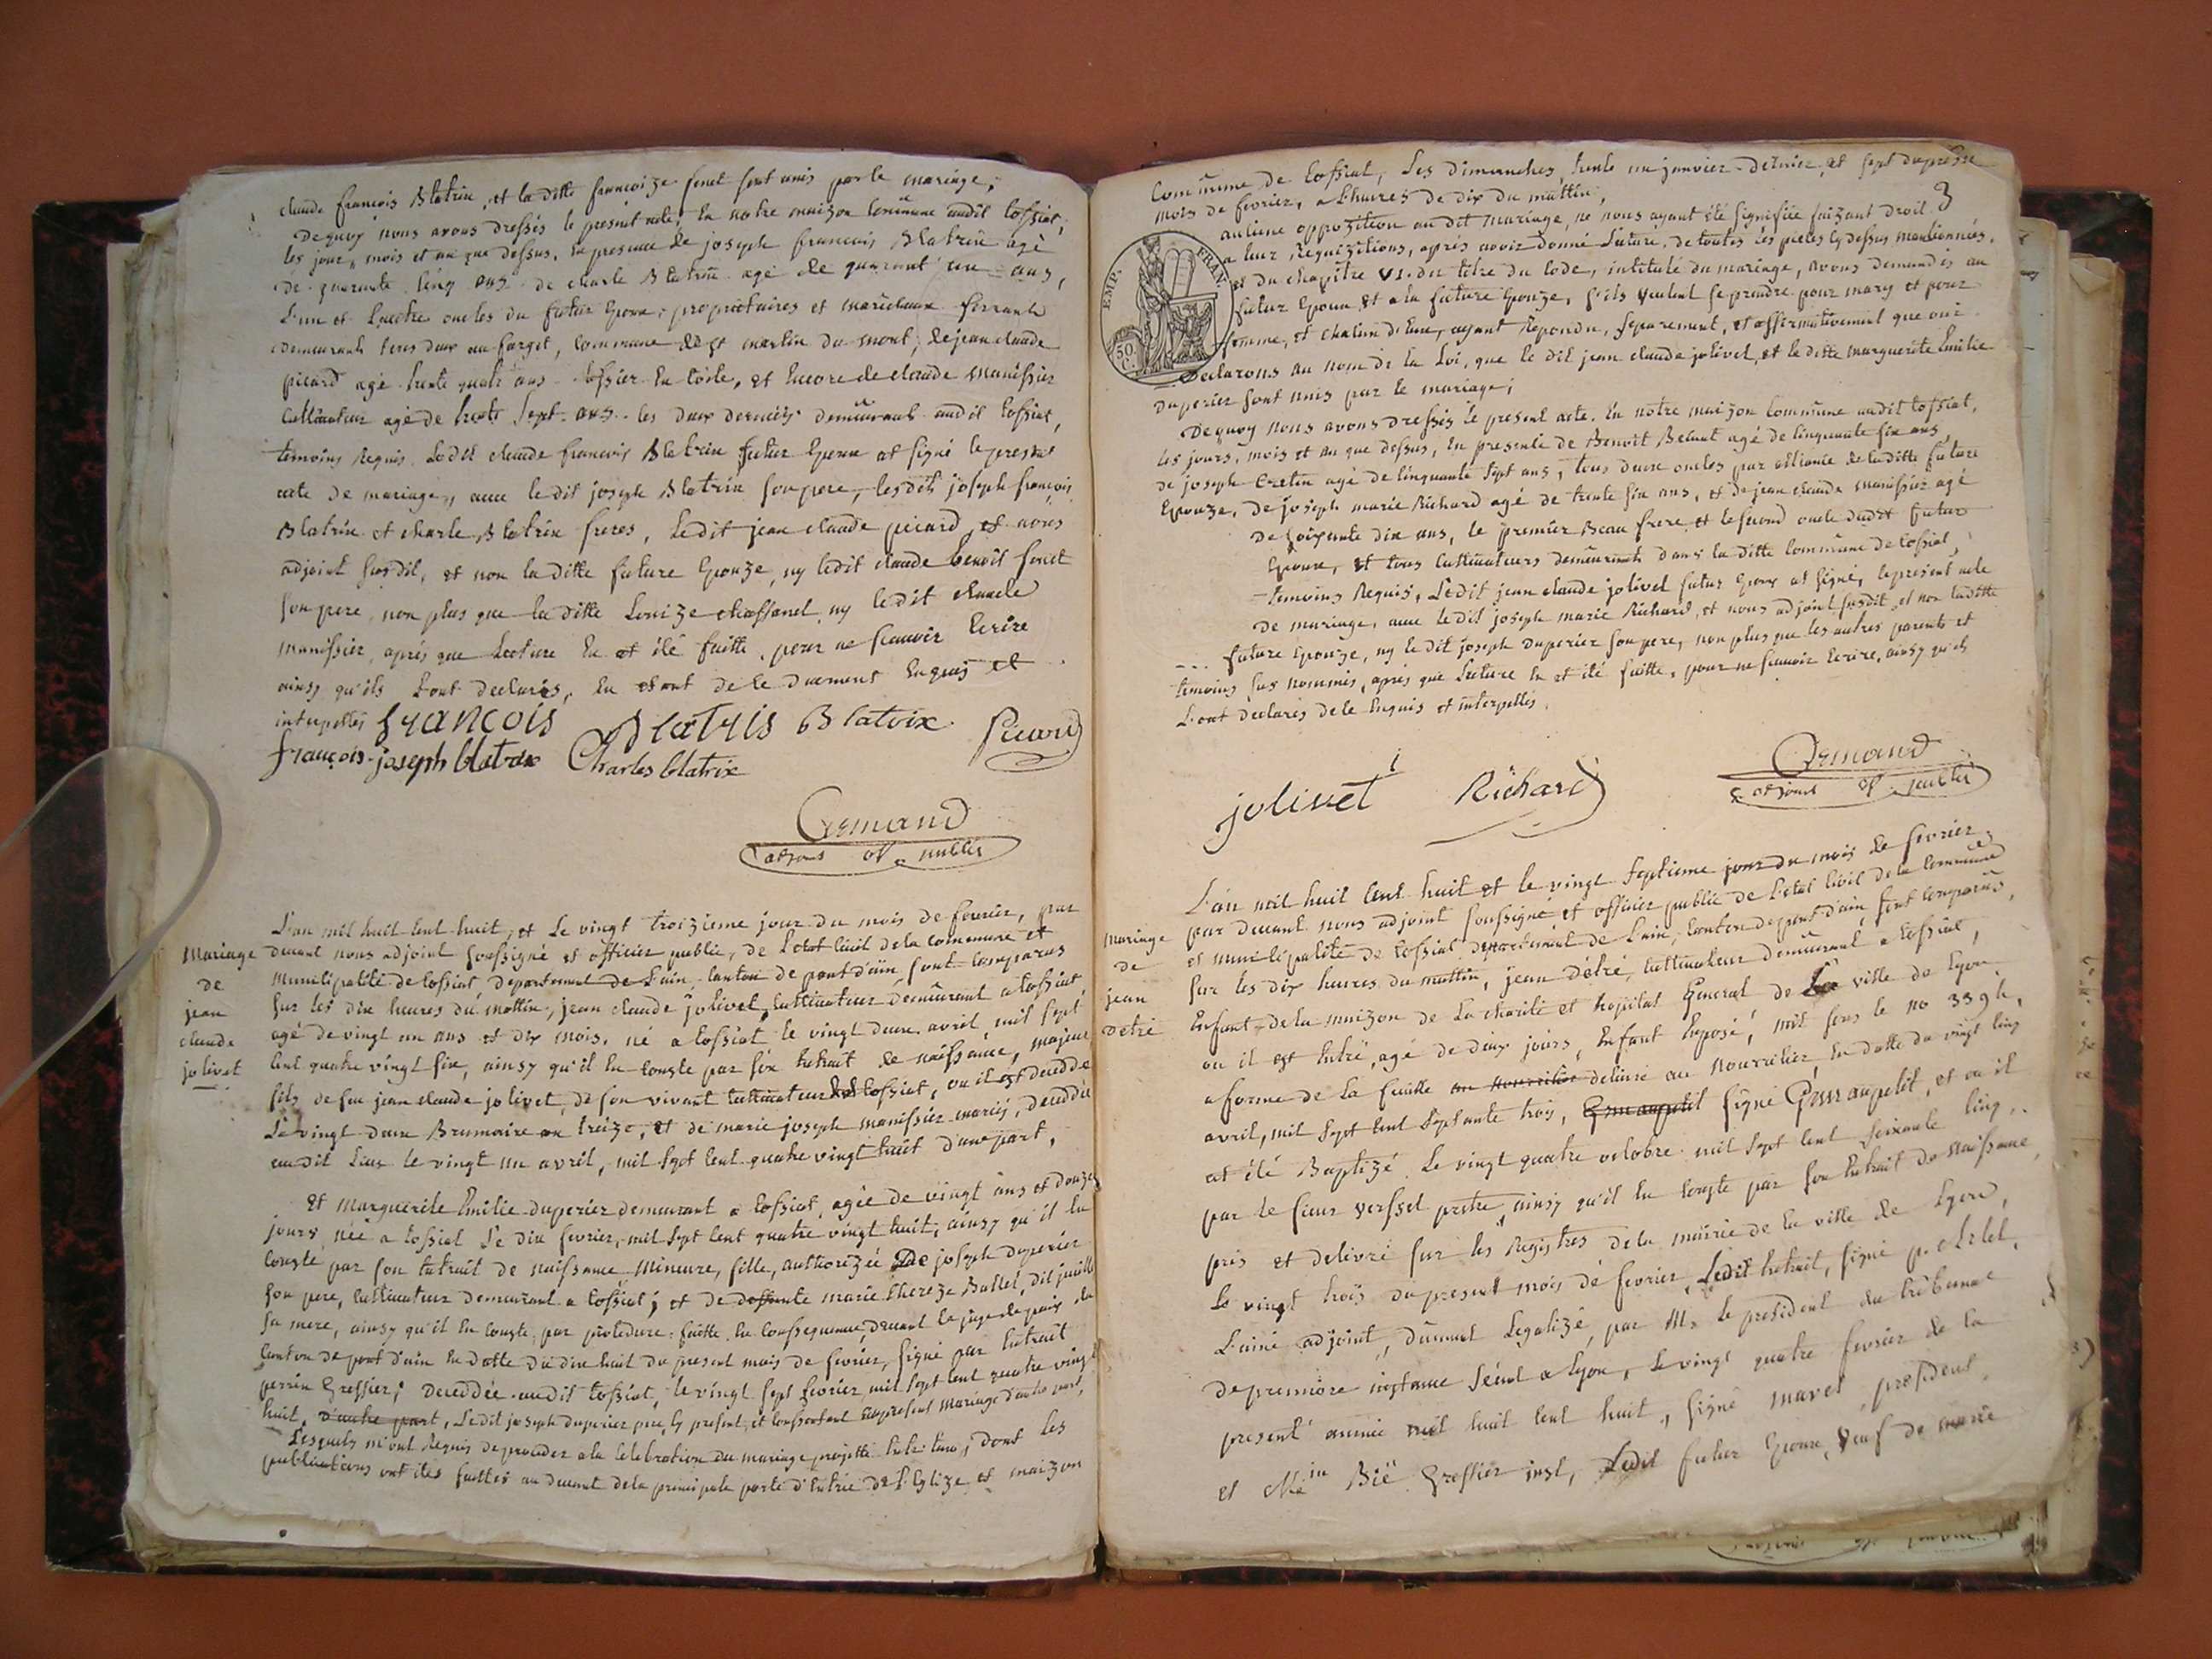 claude françois Blatrix, et la ditte françoize fenet sont unis par le mariage;
De quoy nous avons dressés le present acte, En notre maizon commune audit Cossiat,
les jour, mois et an que dessus. En presence de joseph francois Blatrix agé
de quarante cinq ans de charle Blatrix agé de quarant'un ans,
L'un et L'autre oncles du futur Epoux, proprietaires et marechaux ferrants
demeurants tous deux au farget, commune de St martin du mont; de jean claude
picard agé trente quatr'ans tissier En toile, et Encore de claude Manissier
Cultivateur agé de trente sept ans les deux derniers demeurant audit Cossiat,
temoins Requis. Ledit claude francois Blatrix futur Epoux at signé le present
acte de mariage, avec le dit joseph Blatrix son pere, les dits joseph françois
Blatrix et charle Blatrix freres, Ledit jean claude picard et nous
adjoint susdit, et non la ditte future Epouze, ny ledit claude benoit fenet
son pere, non plus que la ditte Louize chassanel ny ledit claude
manissier, après que Lecture En et été faitte, pour ne scauoir Ecrire
ainsy qu'ils L'ont declarés, En etant de le duement Enquis et
interpellés françois Blatris Blatrix Picard
françois-joseph blatrix Charles blatrix
Armand
adjoint of. public
Mariage
de
jean
claude
jolivet
L'an mil huit cent huit, et Le vingt troizieme jour du mois de fevrier, par
devant nous adjoint soussigné et officier public, de L'etat civil de la commune et
Municipalité de Cossiat departement de L'ain canton de pont d'ain, sont comparus
sur les dix heures du mattin, jean claude jolivet, cultivateur demeurant a Cossiat,
agé de vingt un ans et dix mois, né a Cossiat le vingt deux avril mil sept
cent quatre vingt six, ainsy qu'il En conste par son Extrait de naissance, majeur
fils de feu jean claude jolivet, de son vivant cultivateur a Cossiat, ou il est deceddé
Le vingt deux Brumaire an treize, et de marie joseph manissier mariés, deceddée
audit Lieu le vingt un avril, mil sept cent quatre vingt huit d'une part,
Et Marguerite Emilie duperier demeurant a Cossiat, agée de vingt ans et douze
jours, née a Cossiat Le dix fevrier, mil sept cent quatre vingt huit, ainsy qu'il En
conste par son Extrait de naissance Mineure, fille, authorizée De joseph duperier
son pere, cultivateur demeurant a Cossiat; et de deffunte marie thereze Ballet, dit juillet
sa mere, ainsy qu'il En conste, par procedure faitte En conssequence, devant le juge de paix du
canton de pont d'ain En datte du dix huit du present mois de fevrier, signé par Extrait
perrin Greffier; deceddée audit Cossiat, le vingt sept fevrier mil sept cent quatre vingt
huit, d'autre part, Ledit joseph duperier pere Cy present et conssentant au present mariage d'autre part,
Lesquels m'ont Requis de proceder a la celebration du mariage projetté Entr'eux, dont les
publications ont étés faittes au devant de la principale porte d'Entrée de L'Eglize et maizon
3
Commune de Cossiat, Les Dimanches trente un janvier dernier, et sept du present
mois de fevrier, a L'heures de dix du mattin;
aucune oppozition au dit mariage, ne nous ayant été signifiée faizant droit
a leur Requizitions, aprés avoir donné Lecture, de toutes les pieces cy dessus mentionnées,
et du chapitre VI. du titre du Code, intitulé du mariage, avons demandés au
futur Epoux, et a la future Epouze, s'ils veulent se prendre pour mary et pour
femme, et chacun d'Eux, ayant Repondu, separement, et affirmativement que oui
Declarons au nom de la Loi, que le dit jean claude jolivet, et la ditte Marguerite Emilie
duperier sont unis par le mariage;
EMP. FRAN.
50 C.
De quoy nous avons dressés le present acte. En notre maizon Commune audit Cossiat,
Les jours, mois et an que dessus, En presence de Benoit Beraut agé de cinquante six ans,
de joseph Cretin agé de cinquante sept ans, tous deux oncles par alliance de la ditte future
Epouze, De joseph marie Richard agé de trente six ans, et de jean claude manissier agé
de soixante dix ans, le premier Beau frere et le second oncle dudit futur
Epoux, et tous cultivateurs demeurants dans la ditte Commune de Cossiat,
temoins Requis, Ledit jean claude jolivet futur Epoux at signé, le present acte
de mariage, avec le dit joseph marie Richard, et nous adjoint susdit, et non la ditte
future Epouze, ny le dit joseph duperier son pere, non plus que les autres parents et
temoins sus nommés, après que Lecture En et été faitte, pour ne scauoir Ecrire, ainsy qu'ils
L'ont declarés de le Enquis et interpellés.
jolivet Richard Armand
adjoint of public
Mariage
de
jean
détré
L'an mil huit cent huit et le vingt septieme jour du mois de fevrier,
par devant nous adjoint soussigné et officier public de L'etat civil de la commune
et municipalité de Cossiat departement de L'ain, canton de pont d'ain, sont comparus
sur les dix heures du mattin, jean détré, cultivateur demeurant a Cossiat,
Enfant de la maizon de La charité et hopital General de La ville de Lyon
ou il est Entré, agé de deux jours, Enfant Exposé, mit sous le no 3394,
a forme de La feuille au nourricier delivré au nourricier, En datte du vingt cinq
avril, mil sept cent septante trois, signé Gmaupetit, et ou il
at été Baptizé Le vingt quatre octobre mil sept cent soixante cinq,
par le sieur verssel pretre, ainsy qu'il En conste par son Extrait de Naissance,
pris et delivré sur les Registres de la mairie de la ville de Lyon,
Le vingt trois du present mois de fevrier, Ledit Extrait, signé
L'ainé adjoint, dûment Legalizé, par Mr Le president du tribunal
de premiere instance séant a Lyon, Le vingt quatre fevrier de la
present' année mil huit cent huit, signé mavel, president,
et Bié Greffier Ledit futur Epoux, veuf de marie